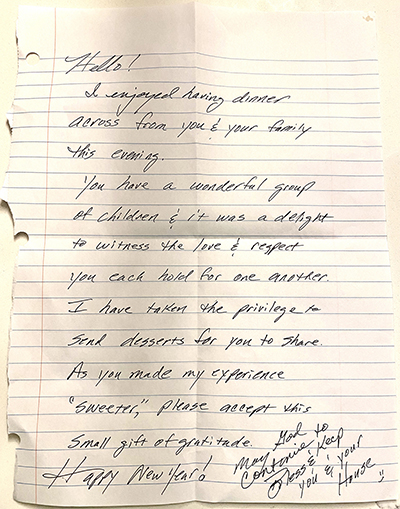 Hello!
I enjoyed having dinner
across from you & your family
this evening.
You have a wonderful group
of children & it was a delight
to witness the love & respect
you each hold for one another.
I have taken the privilege to
send desserts for you to share.
As you made my experience
"sweeter," please accept this
small gift of gratitude.
Happy New Year!
May God
Continue to
Bless & Keep
you & your
House